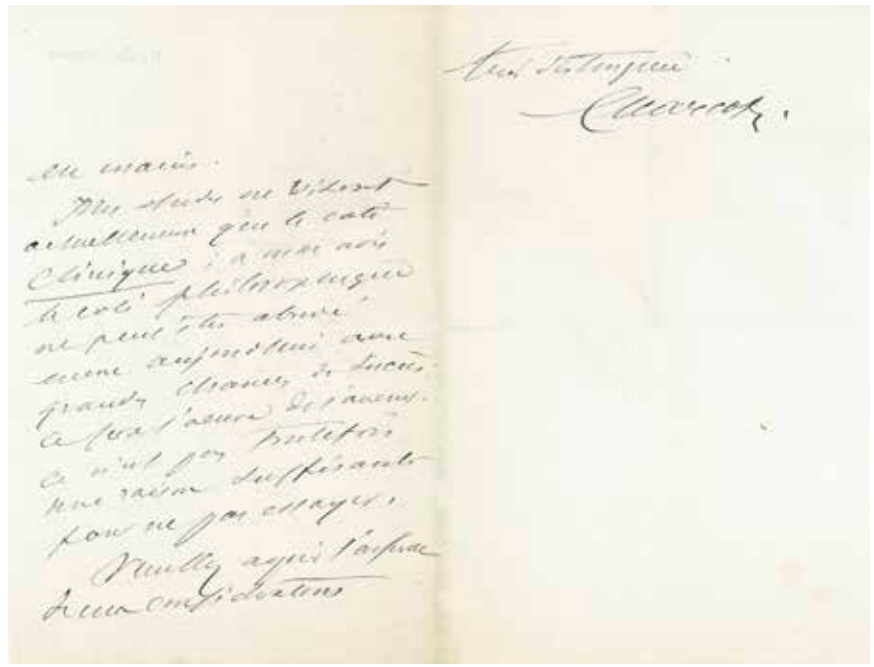 en mains.
Mes études ne visent
actuellement que le côté
Clinique ; à mon avis
le côté philosophique
ne peut être abordé
même aujourdhui avec
grandes chances de succès.
Ce sera l'œuvre de l'avenir.
Ce n'est pas toutefois
une raison suffisante
pour ne pas essayer.
Veuillez agréer l'assurance
de ma considération
très distinguée.
Charcot.